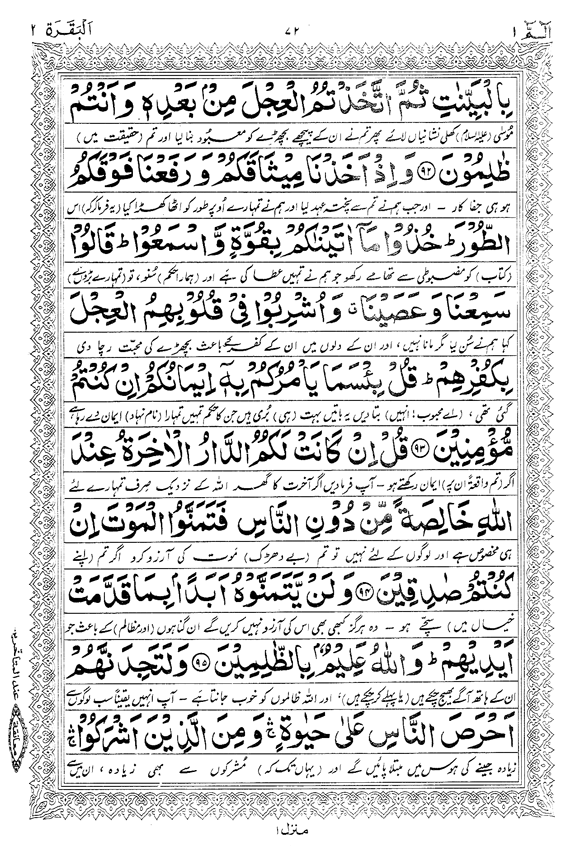 الٓمّٓ ۱ ۷۲ اَلْبَقَرَة ۲
بِالْبَيِّنٰتِ ثُمَّ اتَّخَذْتُمُ الْعِجْلَ مِنْۢ بَعْدِهٖ وَاَنْتُمْ
موسٰی (علیہ السلام) کھلی نشانیاں لائے پھر تم نے ان کے پیچھے بچھڑے کو معبود بنا لیا اور تم (حقیقت میں)
ظٰلِمُوْنَ ﴿۹۲﴾ وَاِذْ اَخَذْنَا مِيْثَاقَكُمْ وَرَفَعْنَا فَوْقَكُمُ
ہو ہی جفا کار ۔ اور جب ہم نے تم سے پختہ عہد لیا اور ہم نے تمہارے اوپر طور کو اٹھا کھڑا کیا (یہ فرما کر کہ) اس
الطُّوْرَ ؕ خُذُوْا مَاۤ اٰتَيْنٰكُمْ بِقُوَّةٍ وَّاسْمَعُوْا ؕ قَالُوْا
(کتاب) کو مضبوطی سے تھامے رکھو جو ہم نے تمہیں عطا کی ہے اور (ہمارا حکم) سنو، تو (تمہارے بڑوں نے)
سَمِعْنَا وَعَصَيْنَا ۗ وَاُشْرِبُوْا فِيْ قُلُوْبِهِمُ الْعِجْلَ
کہا ہم نے سن لیا مگر مانا نہیں، اور ان کے دلوں میں ان کے کفر کے باعث بچھڑے کی محبت رچا دی
بِكُفْرِهِمْ ؕ قُلْ بِئْسَمَا يَاْمُرُكُمْ بِهٖۤ اِيْمَانُكُمْ اِنْ كُنْتُمْ
گئی تھی، (اے محبوب! انہیں) بتا دیں یہ باتیں بہت (ہی) بُری ہیں جن کا حکم تمہیں تمہارا (نام نہاد) ایمان دے رہا ہے
مُّؤْمِنِيْنَ ﴿۹۳﴾ قُلْ اِنْ كَانَتْ لَكُمُ الدَّارُ الْاٰخِرَةُ عِنْدَ
اگر (تم واقعۃً ان پر) ایمان رکھتے ہو ۔ آپ فرما دیں اگر آخرت کا گھر اللہ کے نزدیک صرف تمہارے لئے
اللّٰهِ خَالِصَةً مِّنْ دُوْنِ النَّاسِ فَتَمَنَّوُا الْمَوْتَ اِنْ
ہی مخصوص ہے اور لوگوں کے لئے نہیں تو تم (بے دھڑک) موت کی آرزو کرو اگر تم (اپنے
كُنْتُمْ صٰدِقِيْنَ ﴿۹۴﴾ وَلَنْ يَّتَمَنَّوْهُ اَبَدًۢا بِمَا قَدَّمَتْ
خیال میں) سچے ہو ۔ وہ ہرگز کبھی بھی اس کی آرزو نہیں کریں گے ان گناہوں (اور مظالم) کے باعث جو
اَيْدِيْهِمْ ؕ وَاللّٰهُ عَلِيْمٌۢ بِالظّٰلِمِيْنَ ﴿۹۵﴾ وَلَتَجِدَنَّهُمْ
ان کے ہاتھ آگے بھیج چکے ہیں (یا پہلے کر چکے ہیں)، اور اللہ ظالموں کو خوب جانتا ہے ۔ آپ انہیں یقیناً سب لوگوں سے
اَحْرَصَ النَّاسِ عَلٰى حَيٰوةٍ ۚۛ وَمِنَ الَّذِيْنَ اَشْرَكُوْا ۚۛ
زیادہ جینے کی ہوس میں مبتلا پائیں گے اور (یہاں تک کہ) مشرکوں سے بھی زیادہ، ان میں سے
معانقة
عند المتأخرین
منزل ۱